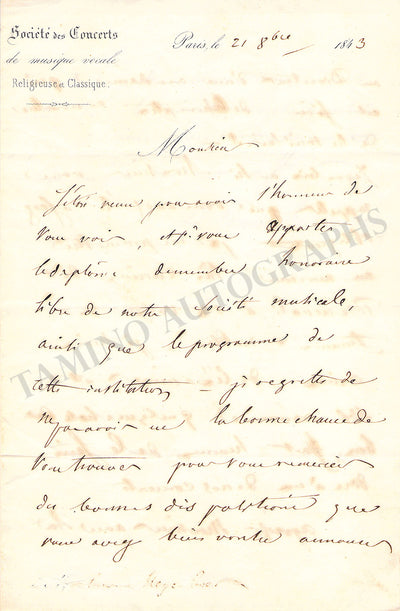 Société des Concerts
de musique vocale
Religieuse et Classique.
Paris, le 21 8bre 1843
Monsieur
J'étois venu pour avoir l'honneur de
vous voir, et pour vous apporter
le diplôme de membre honoraire
libre de notre société musicale,
ainsi que le programme de
cette institution – je regrette de
n'avoir eu la bonne chance de
vous trouver pour vous remercier
des bonnes dispositions que
vous avez bien voulu annoncer
TAMINO AUTOGRAPHS